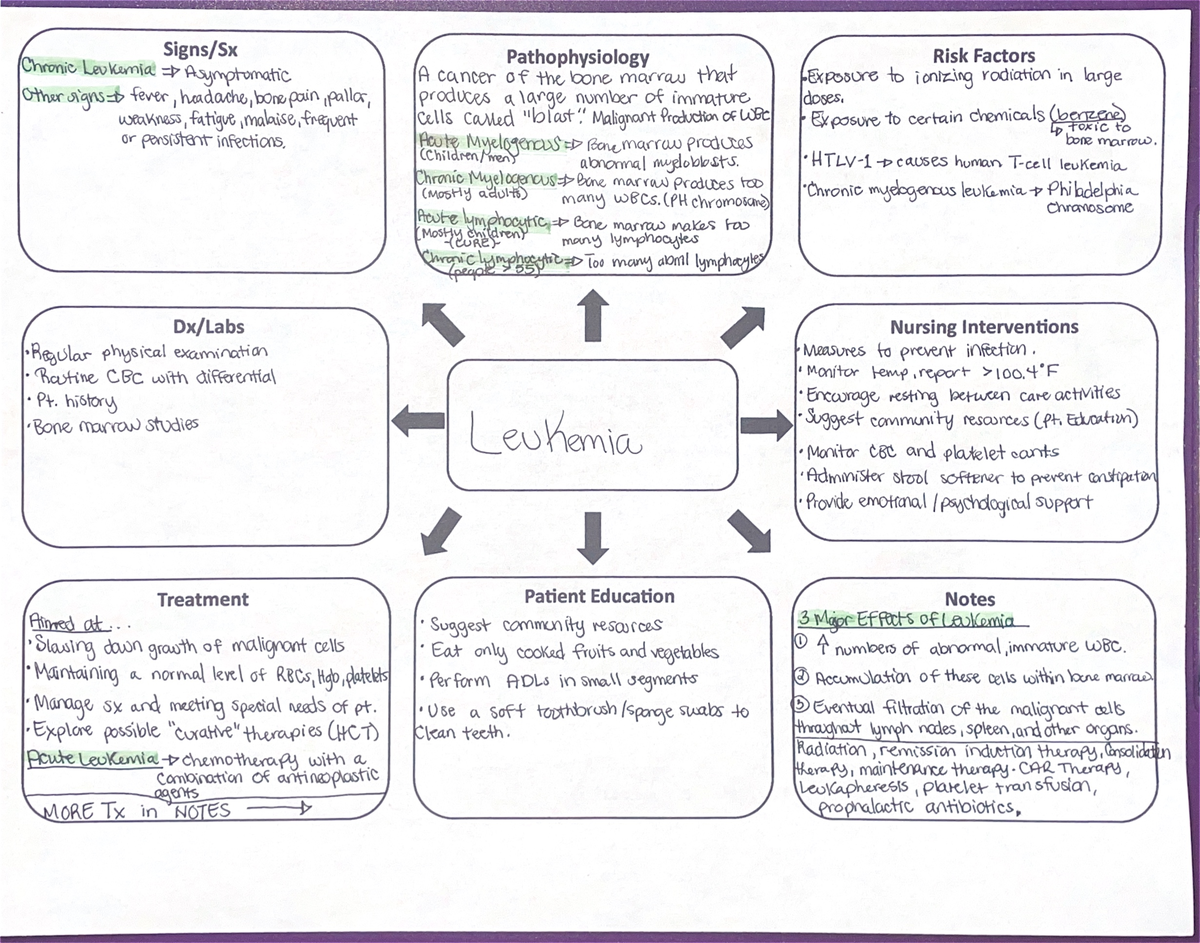 Signs/Sx
Chronic Leukemia => Asymptomatic
Other signs => fever, headache, bone pain, pallor,
weakness, fatigue, malaise, frequent
or persistent infections.
Pathophysiology
A cancer of the bone marrow that
produces a large number of immature
cells called "blast". Malignant Production of WBC
Acute Myelogenous => Bone marrow produces
(Children/men) abnormal myeloblasts.
Chronic Myelogenous => Bone marrow produces too
(Mostly adults) many WBCs. (PH chromosome)
Acute lymphocytic => Bone marrow makes too
(Mostly children) many lymphocytes
-(CURE)-
Chronic lymphocytic => Too many abnl lymphocytes
(people > 55)
Risk Factors
•Exposure to ionizing radiation in large
doses.
• Exposure to certain chemicals (benzene)
↳ toxic to
bone marrow.
• HTLV-1 → causes human T-cell leukemia
•Chronic myelogenous leukemia → Philadelphia
Chromosome
Dx/Labs
•Regular physical examination
• Routine CBC with differential
• Pt. history
•Bone marrow studies
Leukemia
Nursing Interventions
•Measures to prevent infection.
•Monitor temp, report >100.4°F
•Encourage resting between care activities
•Suggest community resources (Pt. Education)
•Monitor CBC and platelet counts
•Administer stool softener to prevent constipation
•Provide emotional/psychological support
Treatment
Aimed at...
•Slowing down growth of malignant cells
•Maintaining a normal level of RBCs, Hgb, platelets
•Manage sx and meeting special needs of pt.
•Explore possible "curative" therapies (HCT)
Acute Leukemia → chemotherapy with a
combination of antineoplastic
agents
MORE Tx in NOTES →
Patient Education
• Suggest community resources
• Eat only cooked fruits and vegetables
• Perform ADLs in small segments
• Use a soft toothbrush/sponge swabs to
clean teeth.
Notes
3 Major Effects of Leukemia
① ↑ numbers of abnormal, immature WBC.
② Accumulation of these cells within bone marrow
③ Eventual filtration of the malignant cells
throughout lymph nodes, spleen, and other organs.
Radiation, remission induction therapy, Consolidation
therapy, maintenance therapy. CAR Therapy,
Leukapheresis, platelet transfusion,
prophalactic antibiotics.